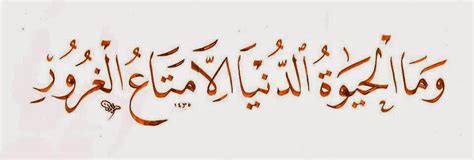 وَمَا الْحَيٰوةُ الدُّنْيَا اِلَّا مَتَاعُ الْغُرُورِ
١٤٣٥